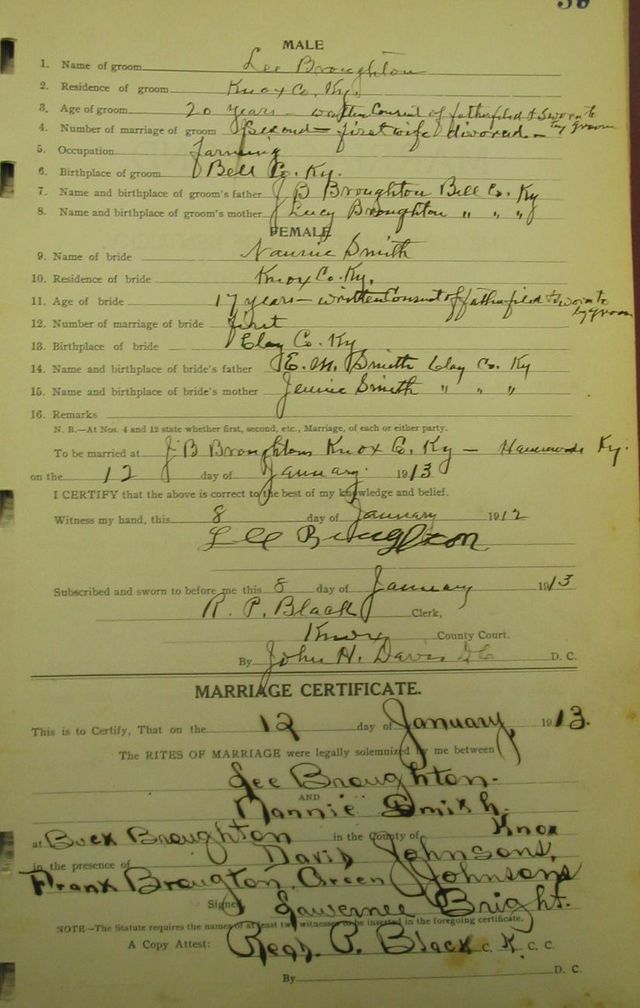 39
MALE
1. Name of groom Lee Broughton
2. Residence of groom Knox Co. Ky.
3. Age of groom 20 years – written Consent of father filed & Sworn to by groom
4. Number of marriage of groom Second – first wife divorced –
5. Occupation farming
6. Birthplace of groom Bell Co. Ky.
7. Name and birthplace of groom's father J B Broughton Bell Co. Ky
8. Name and birthplace of groom's mother Lucy Broughton " " "
FEMALE
9. Name of bride Nannie Smith
10. Residence of bride Knox Co. Ky.
11. Age of bride 17 years – written Consent of father filed & Sworn to by groom
12. Number of marriage of bride first
13. Birthplace of bride Clay Co. Ky
14. Name and birthplace of bride's father E. M. Smith Clay Co. Ky
15. Name and birthplace of bride's mother Jennie Smith " " "
16. Remarks
N. B.—At Nos. 4 and 12 state whether first, second, etc., Marriage, of each or either party.
To be married at J B Broughtons Knox Co. Ky – Ky.
on the 12 day of January. 1913
I CERTIFY that the above is correct to the best of my knowledge and belief.
Witness my hand, this 8 day of January 1912
Lee Broughton
Subscribed and sworn to before me this 8 day of January 1913
R. P. Black Clerk,
Knox County Court.
By John H. Davis D C D. C.
MARRIAGE CERTIFICATE.
This is to Certify, That on the 12 day of January, 1913.
The RITES OF MARRIAGE were legally solemnized by me between
Lee Broughton.
AND
Nannie Smith.
at Buck Broughton in the County of Knox
in the presence of David Johnsons,
Frank Brougton, Green Johnsons
Signed Lawernce Bright.
NOTE—The Statute requires the names of at least two witnesses to be inserted in the foregoing certificate.
A Copy Attest: P. Black C. K. C. C.
By D. C.